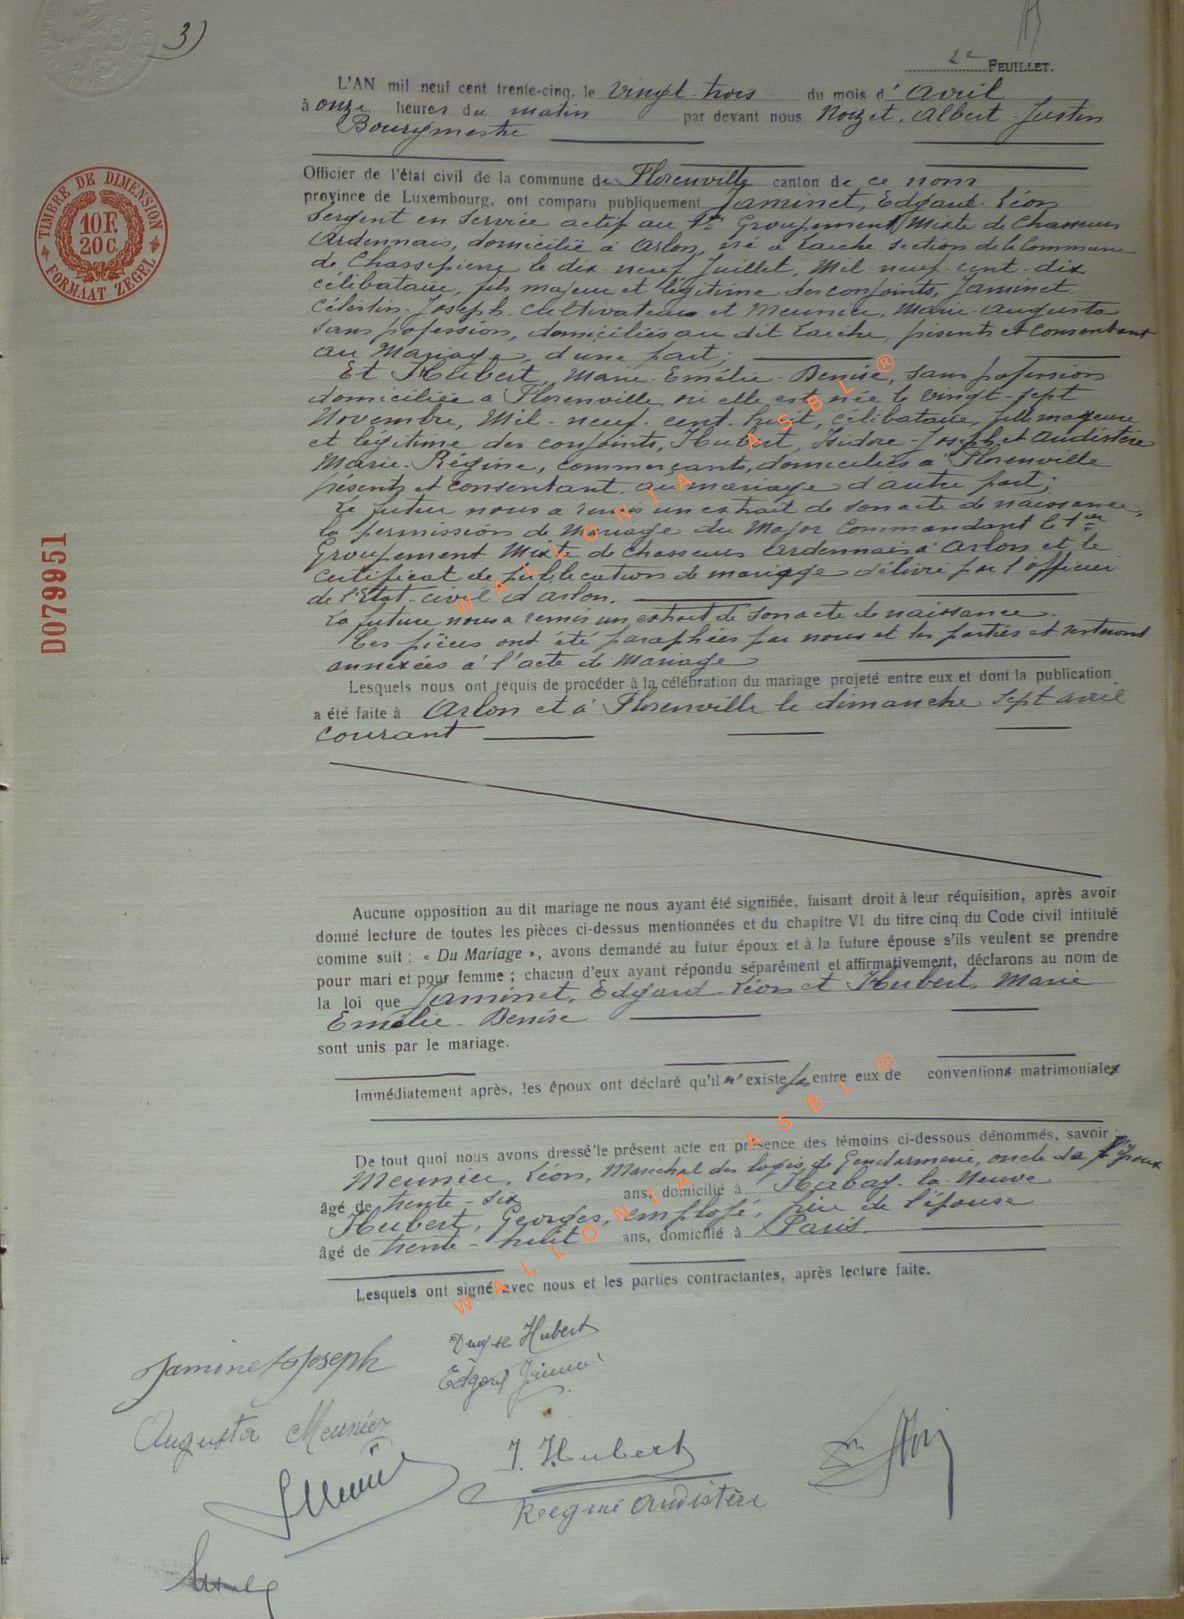 3)
2e FEUILLET.
L'AN mil neuf cent trente-cinq, le vingt trois du mois d'avril
à onze heures du matin par devant nous Nozet, Albert-Justin
Bourgmestre
Officier de l'état civil de la commune de Florenville canton de ce nom
province de Luxembourg, ont comparu publiquement Jaminet, Edgard-Léon
Sergent en service actif au 1er Groupement Mixte de Chasseurs
Ardennais, domicilié à Arlon, né à Laiche section de la commune
de Chassepierre le dix-neuf Juillet, Mil-neuf-cent-dix
célibataire, fils majeur et légitime des conjoints, Jaminet
Célestin-Joseph cultivateur et Meunier, Marie-Augusta
sans profession, domiciliés au dit Laiche, présents et consentant
au Mariage, d'une part;
Et Hubert, Marie-Emélie-Denise, sans profession
domiciliée à Florenville où elle est née le vingt-sept
Novembre, Mil-neuf-cent-huit, célibataire, fille majeure
et légitime des conjoints, Hubert, Isidore-Joseph et Audistère
Marie-Régine, commerçants, domiciliés à Florenville
présents et consentant au mariage d'autre part;
Le futur nous a remis un extrait de son acte de naissance,
la permission de Mariage du Major Commandant le 1er
Groupement Mixte de chasseurs Ardennais à Arlon et le
certificat de publication de mariage délivré par l'officier
de l'Etat-civil d'Arlon.
La future nous a remis un extrait de son acte de naissance.
Ces pièces ont été paraphées par nous et les parties et resteront
annexées à l'acte de Mariage
Lesquels nous ont requis de procéder à la célébration du mariage projeté entre eux et dont la publication
a été faite à Arlon et à Florenville le dimanche sept avril
courant
Aucune opposition au dit mariage ne nous ayant été signifiée, faisant droit à leur réquisition, après avoir
donné lecture de toutes les pièces ci-dessus mentionnées et du chapitre VI du titre cinq du Code civil intitulé
comme suit : « Du Mariage », avons demandé au futur époux et à la future épouse s'ils veulent se prendre
pour mari et pour femme ; chacun d'eux ayant répondu séparément et affirmativement, déclarons au nom de
la loi que Jaminet, Edgard-Léon et Hubert, Marie
Emélie-Denise
sont unis par le mariage.
Immédiatement après, les époux ont déclaré qu'il n'existe pas entre eux de conventions matrimoniales
De tout quoi nous avons dressé le présent acte en présence des témoins ci-dessous dénommés, savoir :
Meunier, Léon, Maréchal des logis de Gendarmerie, oncle de l'époux
âgé de trente-six ans, domicilié à Habay-la-Neuve
Hubert, Georges, employé, frère de l'épouse
âgé de trente-huit ans, domicilié à Paris.
Lesquels ont signé avec nous et les parties contractantes, après lecture faite.
Denise Hubert
Jaminet Joseph
Edgard Jaminet
Augusta Meunier
J. Hubert
Régine Audistère
TIMBRE DE DIMENSION
10 F.
20 C.
FORMAAT ZEGEL
D079951
WALLONIA ASBL ®
WALLONIA ASBL ®